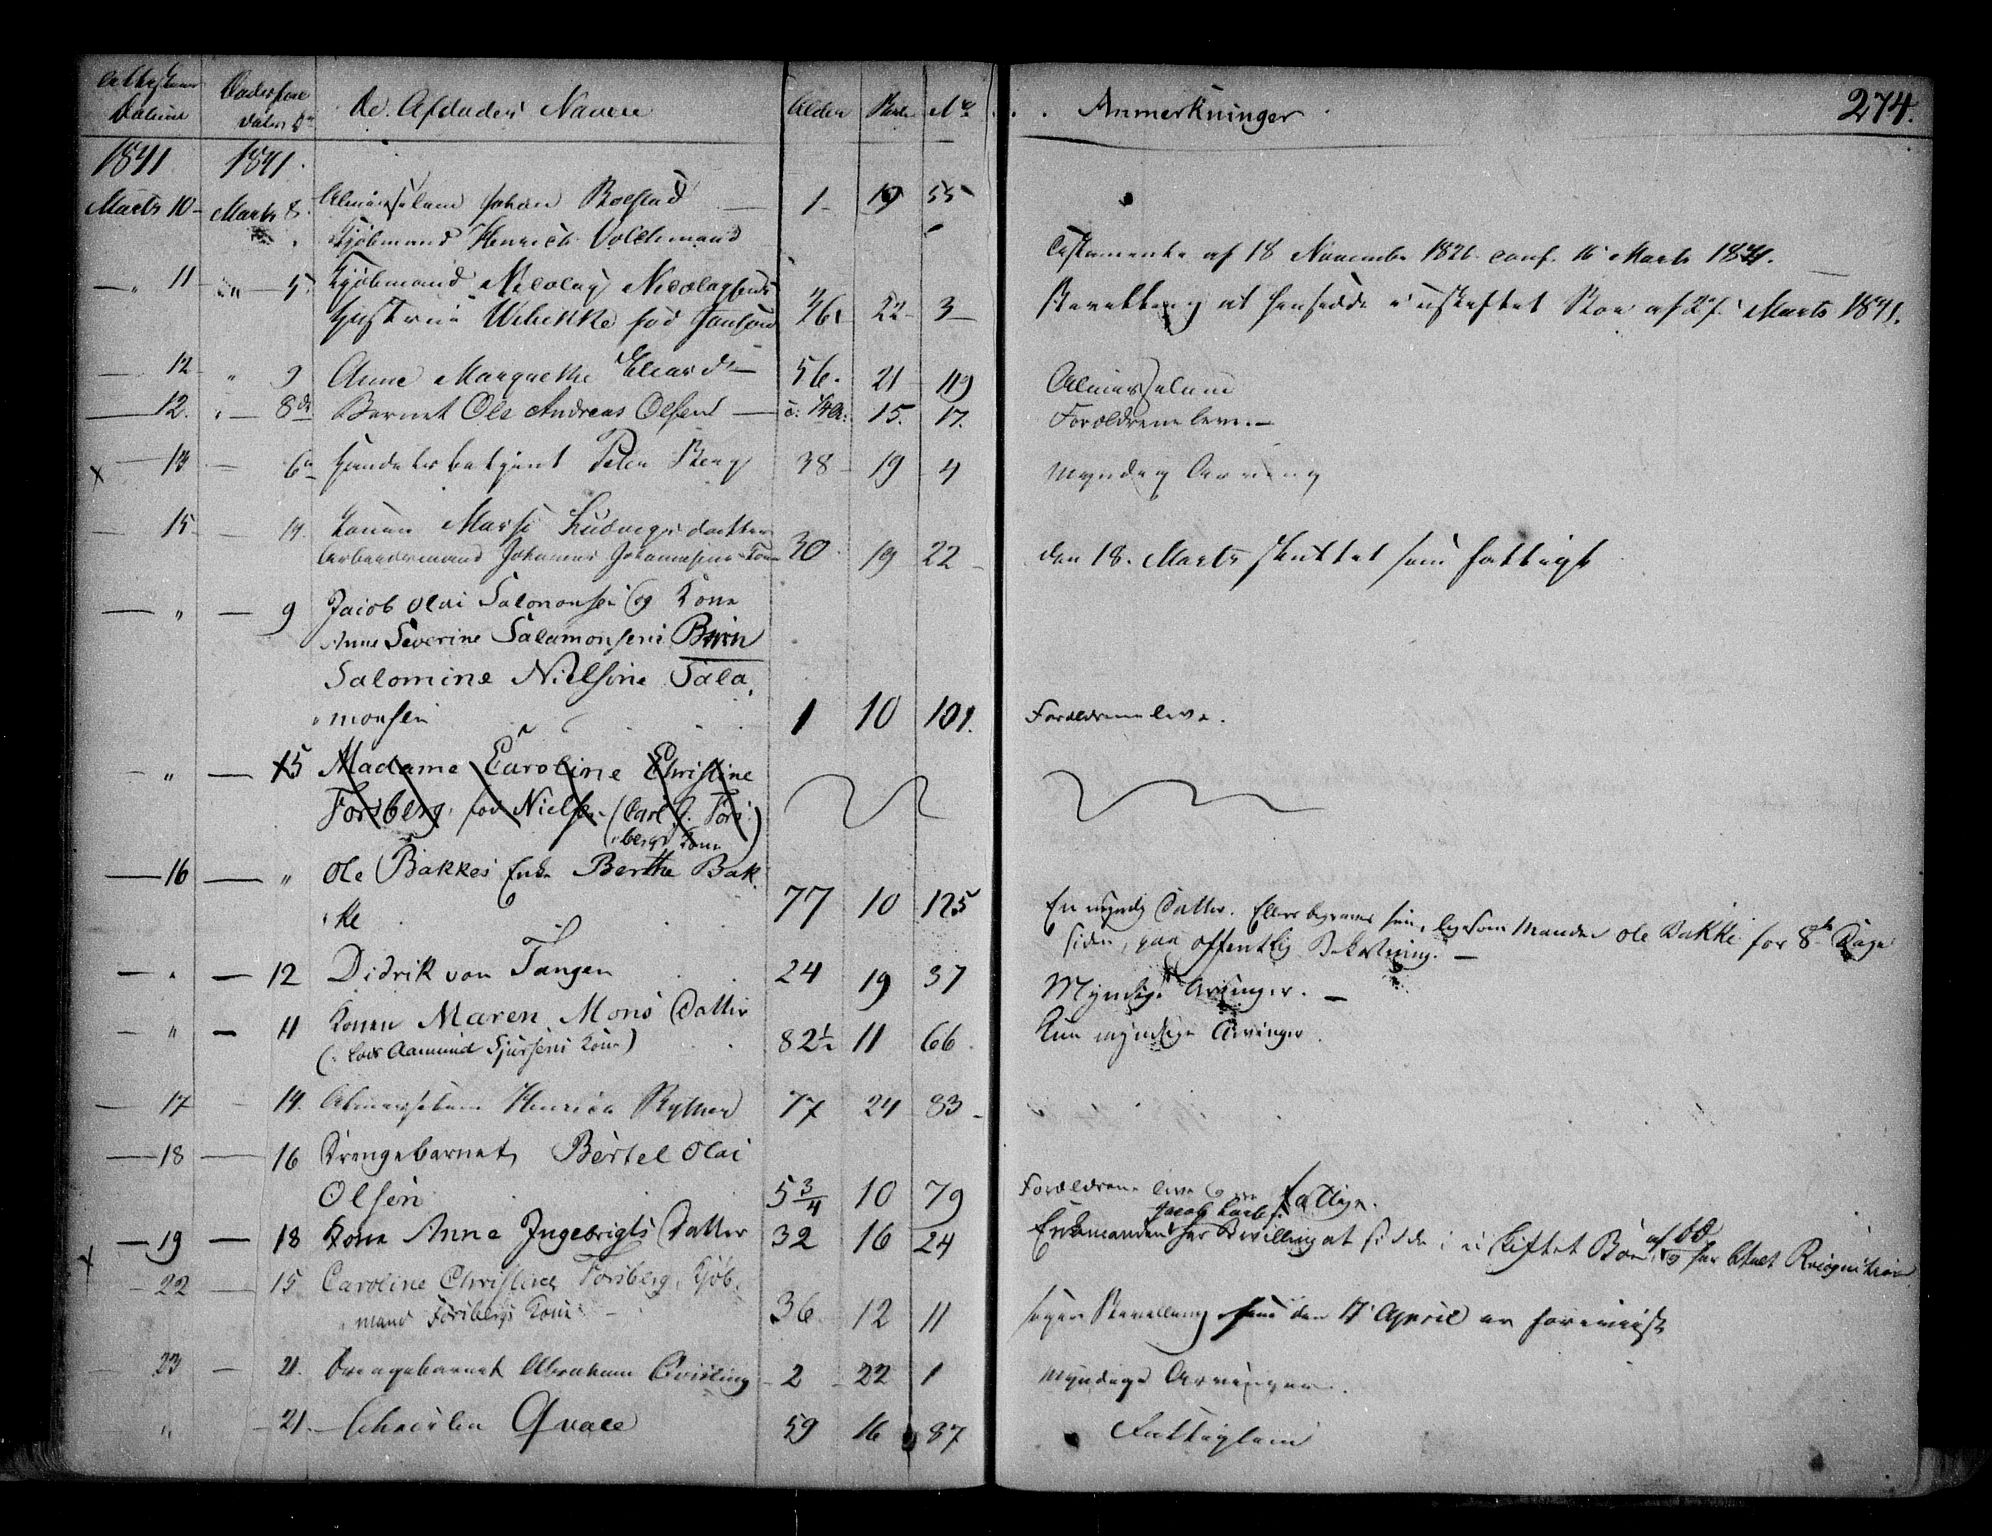 Datum De Afdødes Navne Alder Rode No Anmerkninger 274.
1841 1841.
Marts 10 Marts 8. Almisselem Johan Bolstad 1 19 55
Kjøbmand Henrich Volckmand
Testamente af 18 November 1826 conf. 16 Marts 1841.
11 5 Kjøbmand Nicolay Nicolaysens
Hustrue Wibekke fød Jansen 46 22 3 Bevilling at hensidde i uskiftet Boe af Marts 1841.
12 9 Anne Margrethe 56. 21 119 Almisselem
12. 8de Barnet Ole Andreas Olsen 15. 17. Forældrene leve.
x 13 6 Handelsbetjent Peder Berg 38 19 4 Myndig Arving
15 14. Konen Marthe Ludvigsdatter
Arbeidsmand Johannes Johannesens Kone 30 19 22 den 18. Marts sluttet som fattigt
" 9 Jacob Olai Salomonsen og Kone
Anne Severine Salamonsens Barn
Salomine Nielsine Sala
monsen 1 10 101. Forældrene leve.
" 15 Madame Caroline Christine
Forsberg, fød Nielsen (Carl J. Fors
bergs Kone)
16 " Ole Bakkes Enke Berthe Bak
ke 77 10 125 En myndig Datter. Ellers begraves hun, ligesom Manden Ole Bakke for 8te Dage
siden, paa offentlig Bekostning.
" 12 Didrik von Tangen 24 19 37 Myndige Arvinger.
" 11 Konen Maren Mons Datter
(Lods Aamund Sjursens Kone) 82½ 11 66 Kun myndige Arvinger
17 14. Almisselem Henrica Rytter 77 24 83
18 16 Drengebarnet Bertel Olai
Olsen 5¾ 10 79 Forældrene leve og ere fattige.
x 19 18 Kone Anne Ingebrigts Datter 32 16 24 Enkemanden Jacob Larsen har Bevilling at sidde i uskiftet Boe, og har betalt Recognition
22 15 Caroline Christine Forsberg, Kjøb
mand Forsbergs Kone 36 12 11 søger Bevilling som den 17 April er foreviist
23 21. Drengebarnet Abraham Qvisling 2 22 1 Myndige Arvinger.
" 21. Qvale 59 16 87 Fattiglem